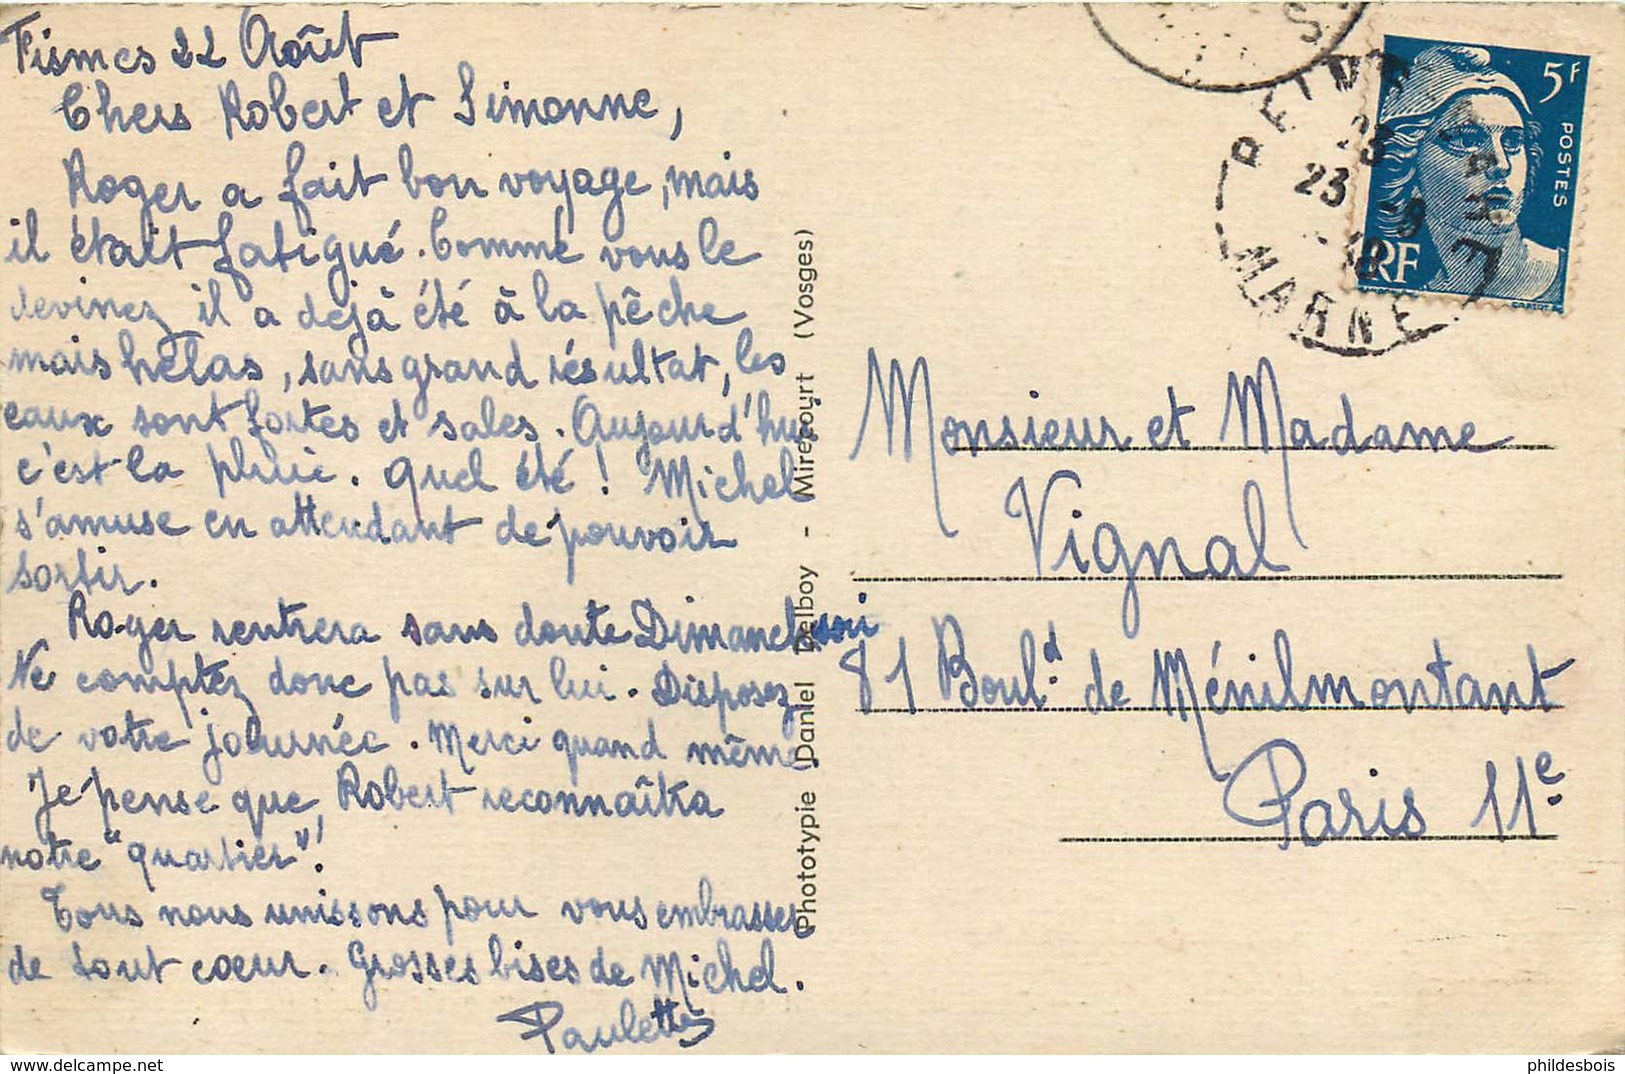 Fismes 22 Août
Chers Robert et Simonne,
Roger a fait bon voyage, mais
il était fatigué. Comme vous le
devinez il a dejà été à la pêche
mais hélas, sans grand résultat, les
eaux sont fortes et sales. Aujourd'hui
c'est la pluie. Quel été ! Michel
s'amuse en attendant de pouvoir
sortir.
Roger rentrera sans doute Dimanche soir
Ne comptez donc pas sur lui. Disposez
de votre journée. Merci quand même
Je pense que Robert reconnaîtra
notre "quartier"!
Tous nous unissons pour vous embrasser
de tout coeur. Grosses bises de Michel.
Paulette
Phototypie (Daniel Delboy - Mirecourt (Vosges)
5F
POSTES
RF
REIMS
23
MARNE
Monsieur et Madame
Vignal
81 Boul.d de Ménilmontant
Paris 11e.
phildesbois